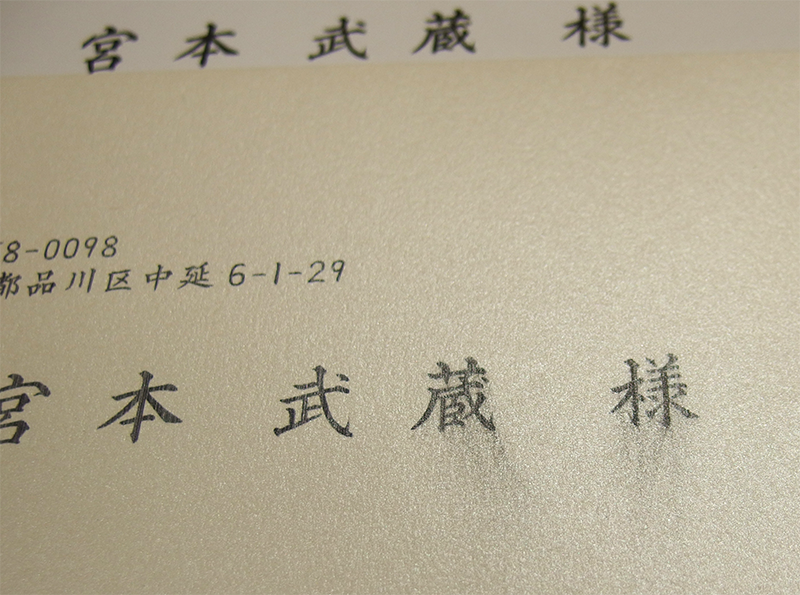 宮本 武蔵 様
8-0098
都品川区中延 6-1-29
宮本 武蔵 様